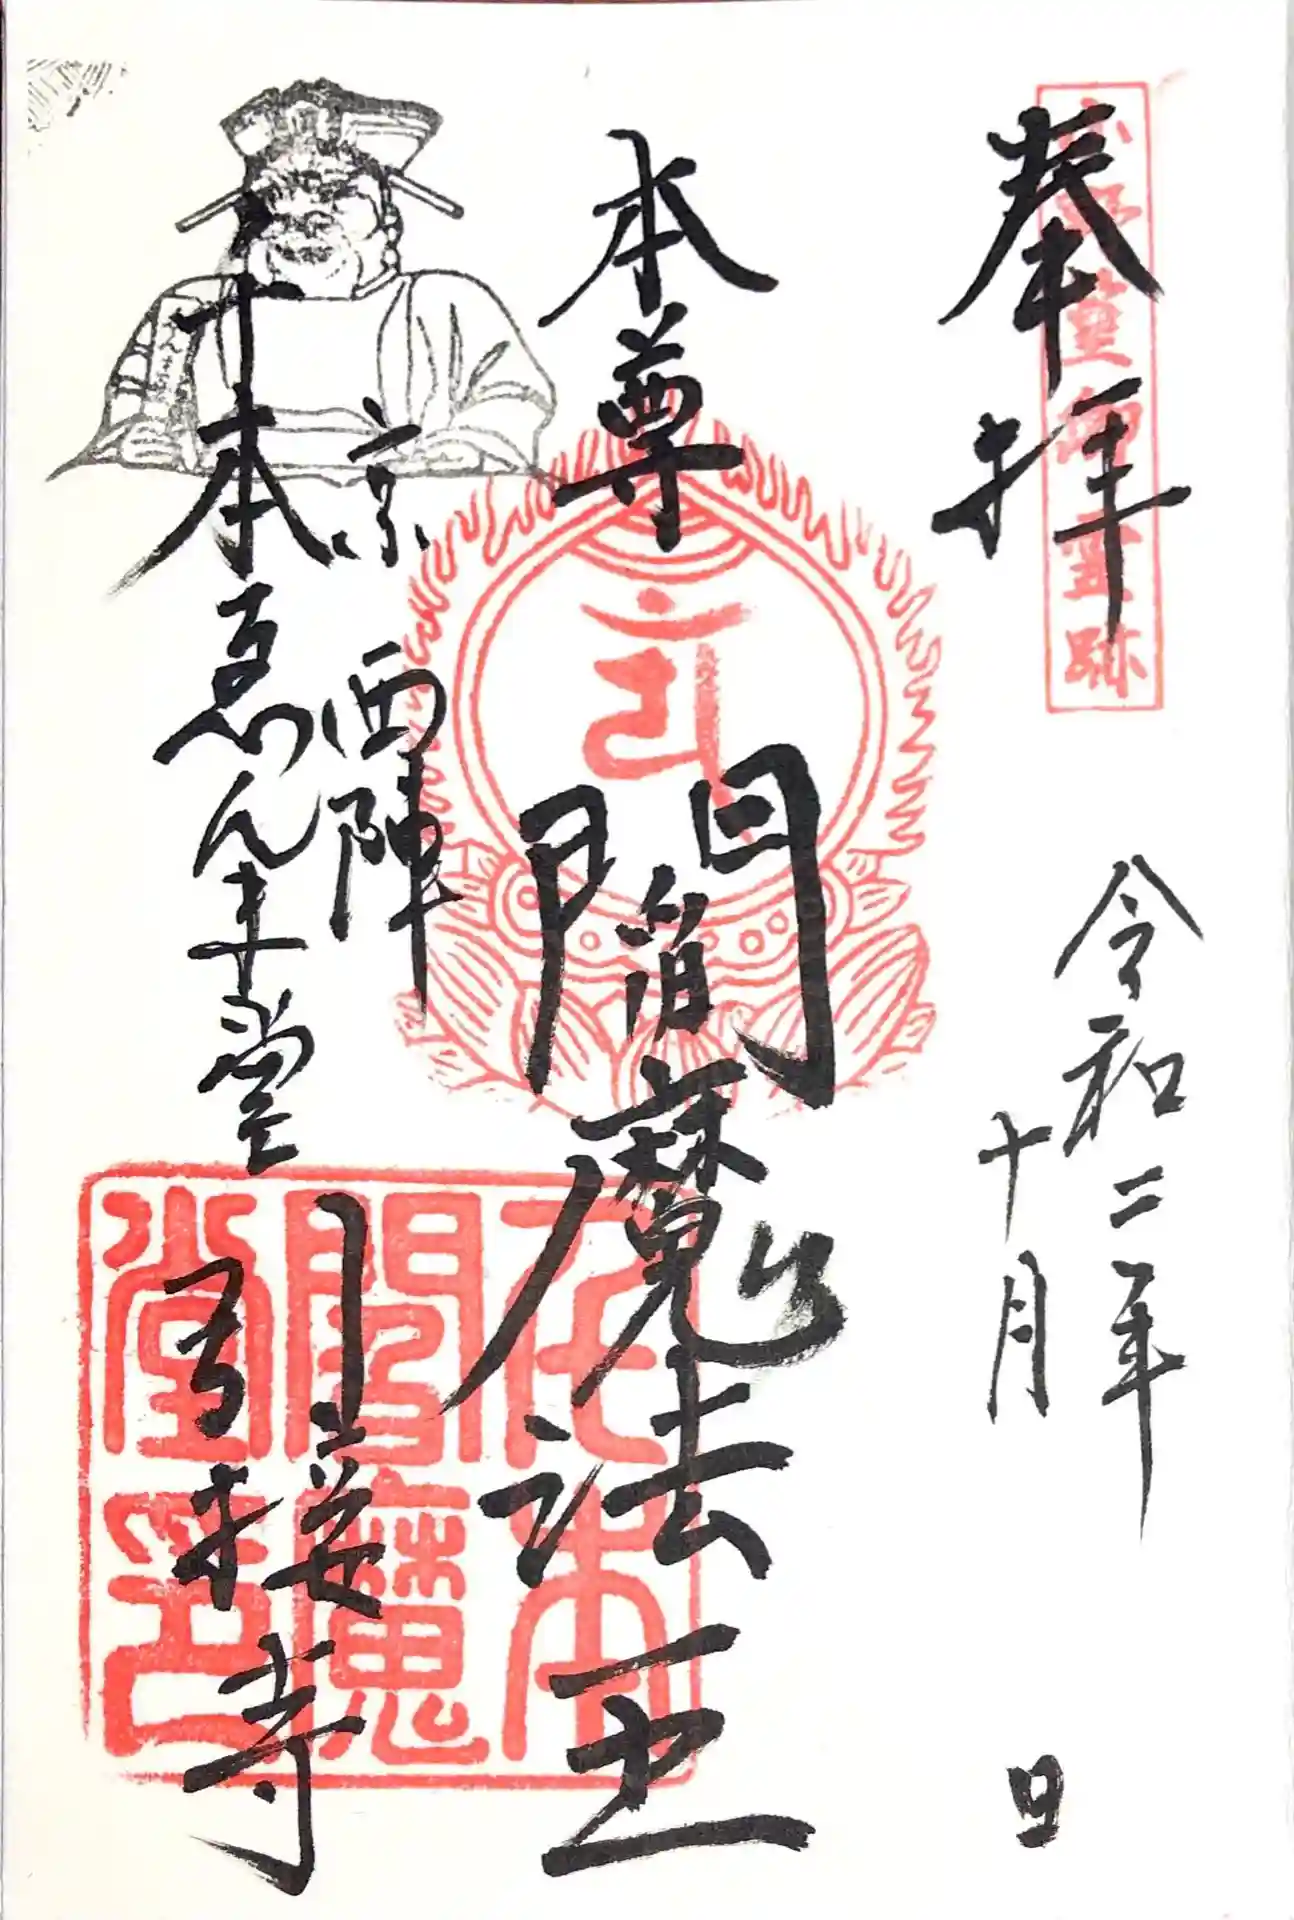 奉拝
小野篁御霊跡
令和二年
十月 日
本尊 閻魔法王
京西陣
千本ゑんま堂
引接寺
千本閻魔堂印